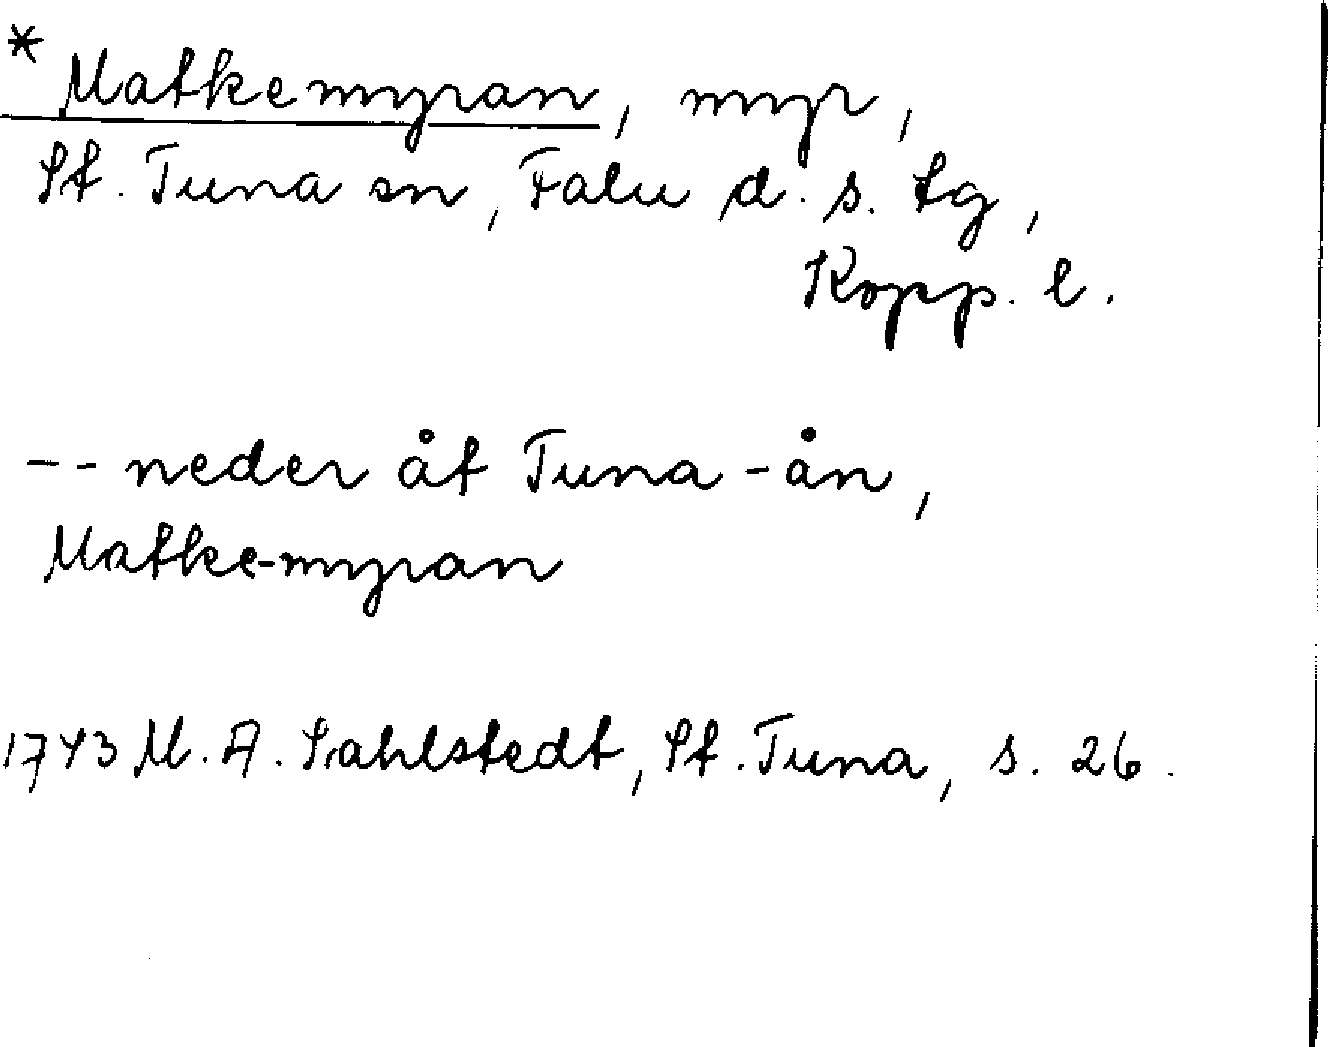 * Matkemyran, myr,
St. Tuna sn, Falu d. s. tg,
Kopp. l.
-- neder åt Tuna-ån,
Matke-myran
1743 M. A. Sahlstedt, St. Tuna, s. 26.